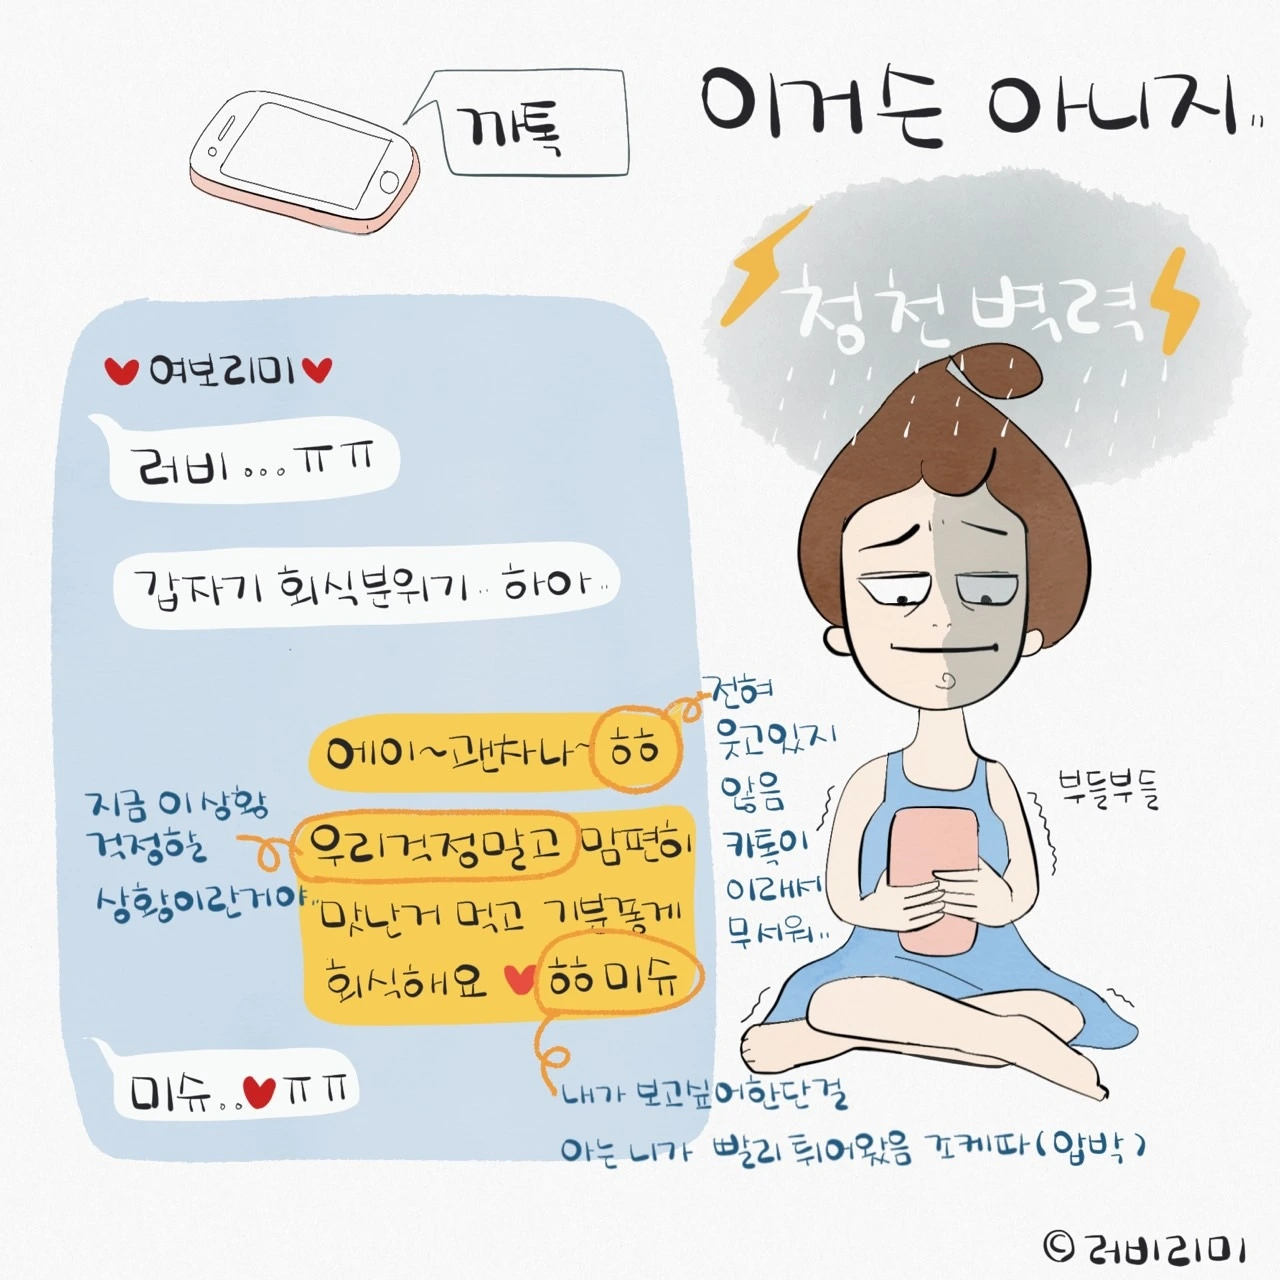 까톡
이거슨 아니지..
청천벽력
♥여보리미♥
러비...ㅠㅠ
갑자기 회식분위기.. 하아..
에이~괜차나~ㅎㅎ
전혀
웃고있지
않음
카톡이
이래서
무서워..
부들부들
지금 이상황
걱정할
상황이란거야..
우리걱정말고 맘편히
맛난거 먹고 기분좋게
회식해요 ♥ㅎㅎ미슈
미슈..♥ㅠㅠ
내가 보고싶어한단걸
아는 니가 빨리 튀어왔음 조케따(압박)
©러비리미